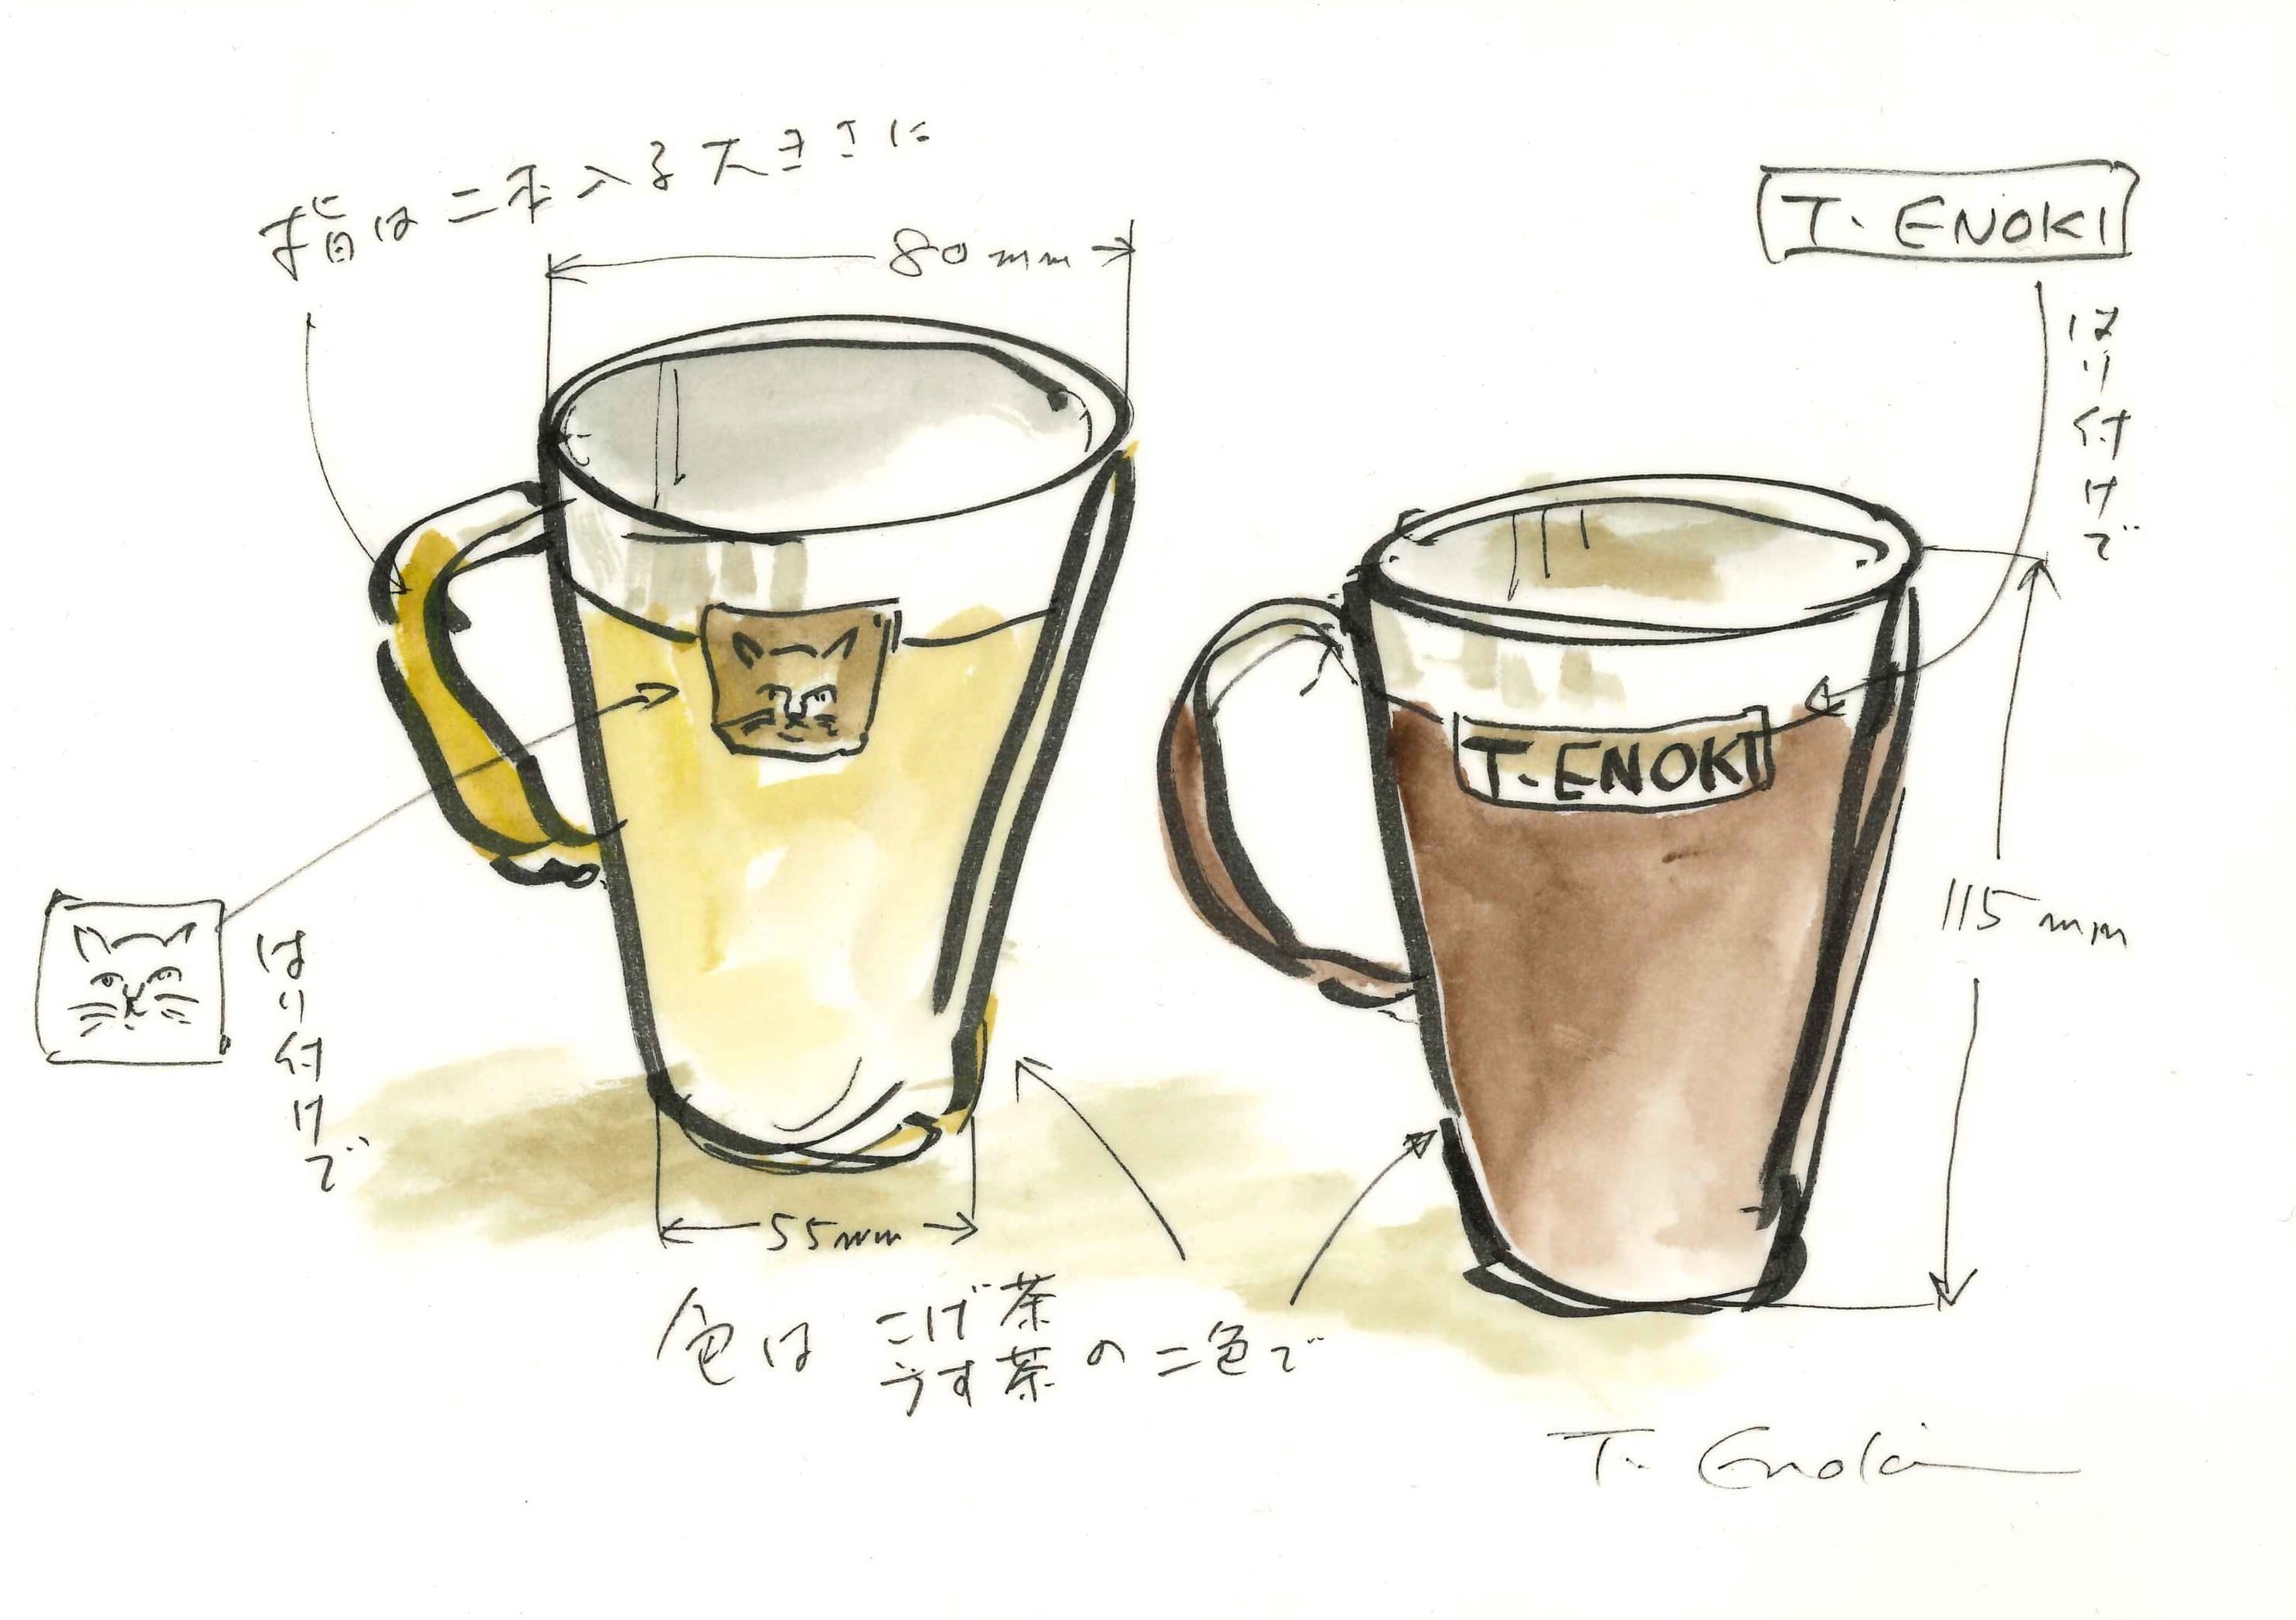 指は二本入る大きさに
80mm
T. ENOKI
はり付けで
T. ENOKI
115mm
はり付けで
55mm
色は こげ茶
うす茶 の二色で
T. Enoki